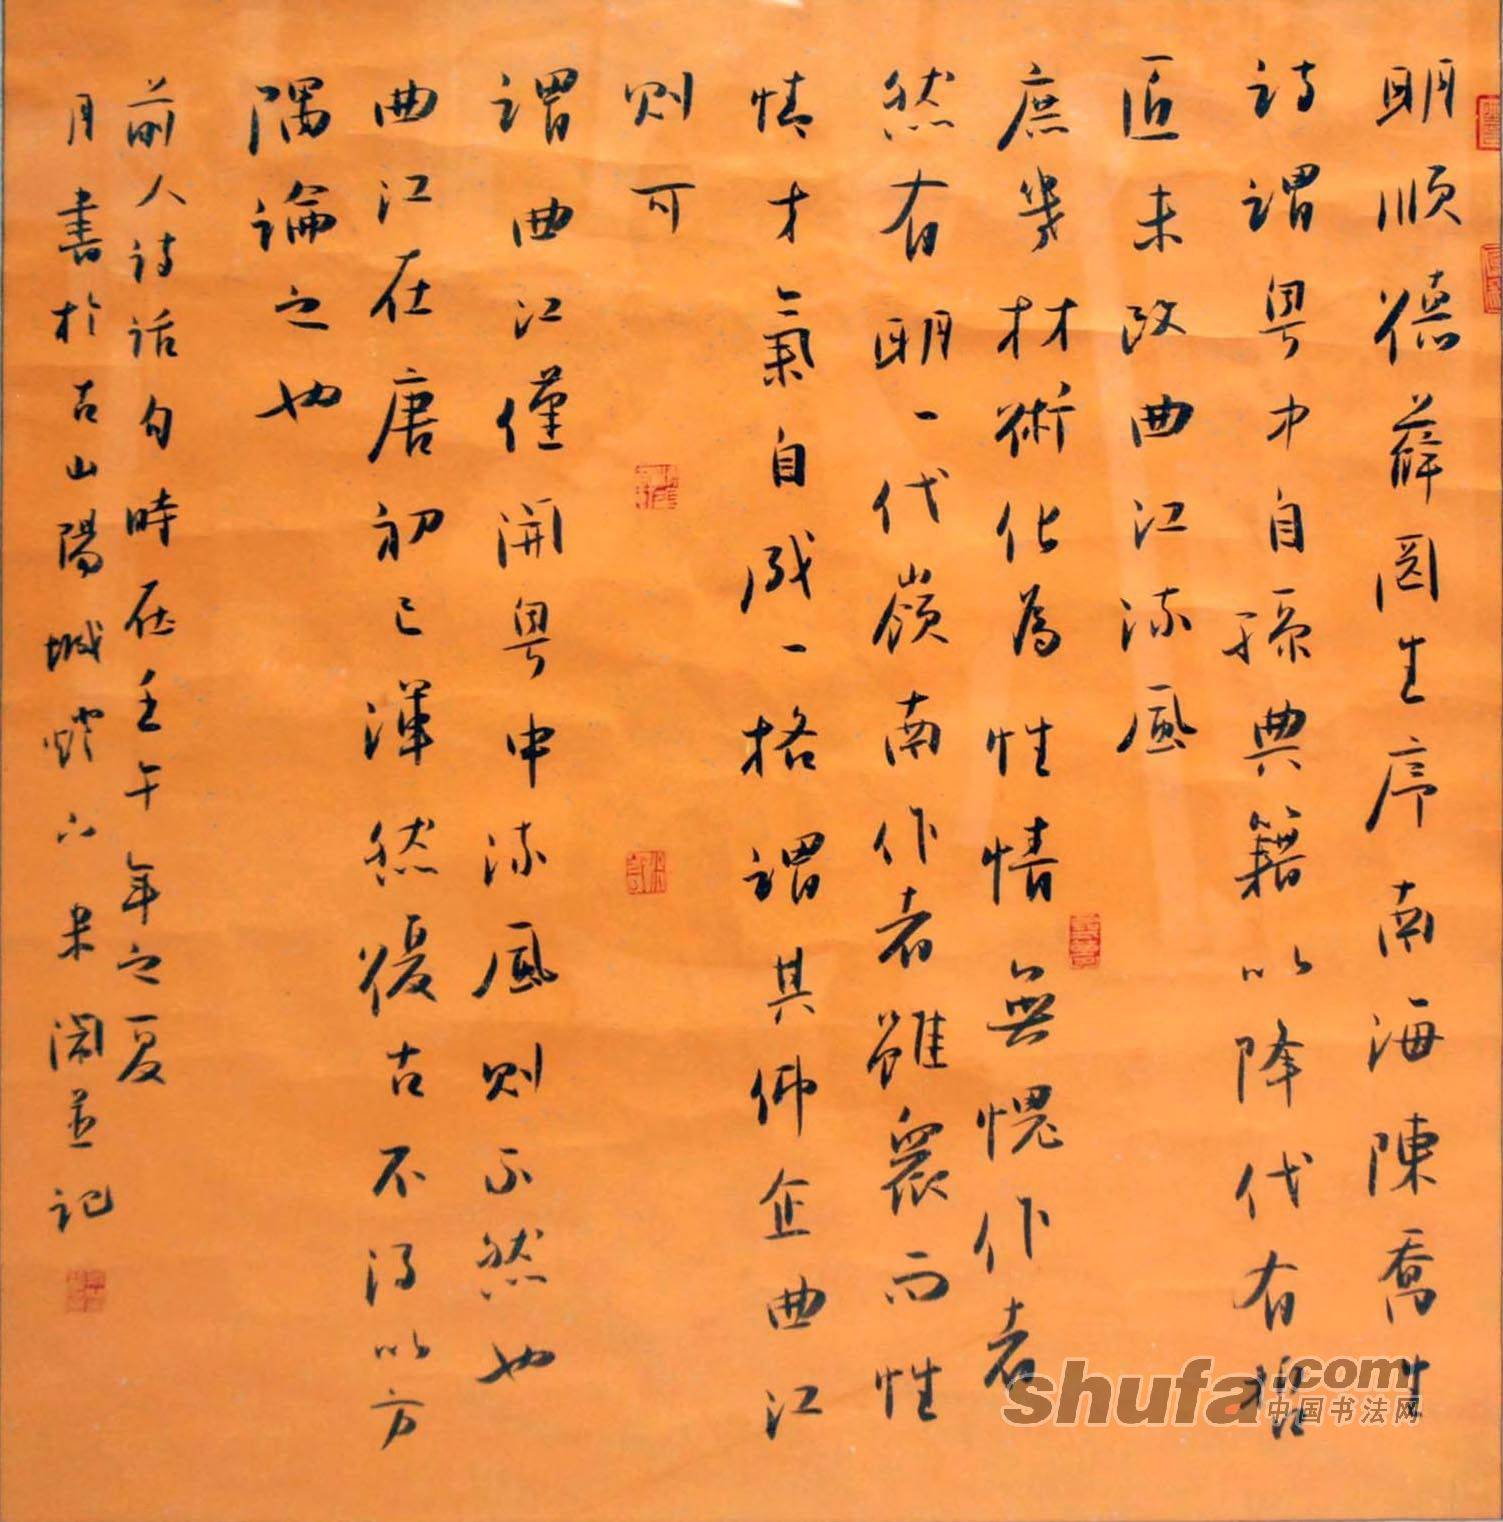 明順德薛岡生序南海陳喬生
詩謂粵中自孫典籍以降代有哲
匠未改曲江流風
庶幾材術化為性情無愧作者
然有明一代嶺南作者雖眾而性
情才氣自成一格謂其仰企曲江
則可
謂曲江僅開粵中流風則不然也
曲江在唐初已渾然復古不得以方
隅論之也
前人詩話句時在壬午年之夏
月書於古山陽城 閣並記
shufa.com
中国书法网